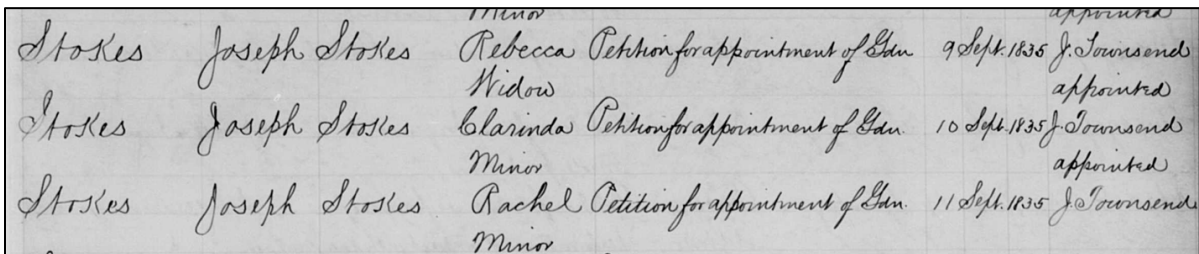 Minor appointed
Stokes Joseph Stokes Rebecca Petition for appointment of Gdn 9 Sept. 1835 J. Townsend
Widow appointed
Stokes Joseph Stokes Clarinda Petition for appointment of Gdn. 10 Sept. 1835 J. Townsend
Minor appointed
Stokes Joseph Stokes Rachel Petition for appointment of Gdn. 11 Sept. 1835 J. Townsend
Minor